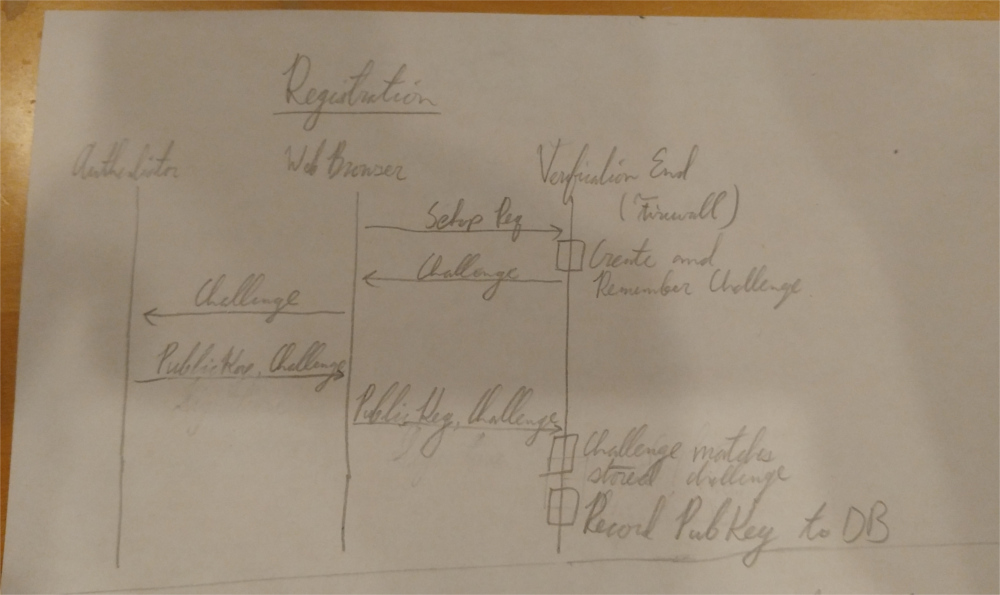 Registration
Authenticator
Web Browser
Verification End
(Firewall)
Setup Req
Create and
Remember Challenge
Challenge
Challenge
Public Key, Challenge
Public Key, Challenge
Challenge matches
stored challenge
Record PubKey to DB